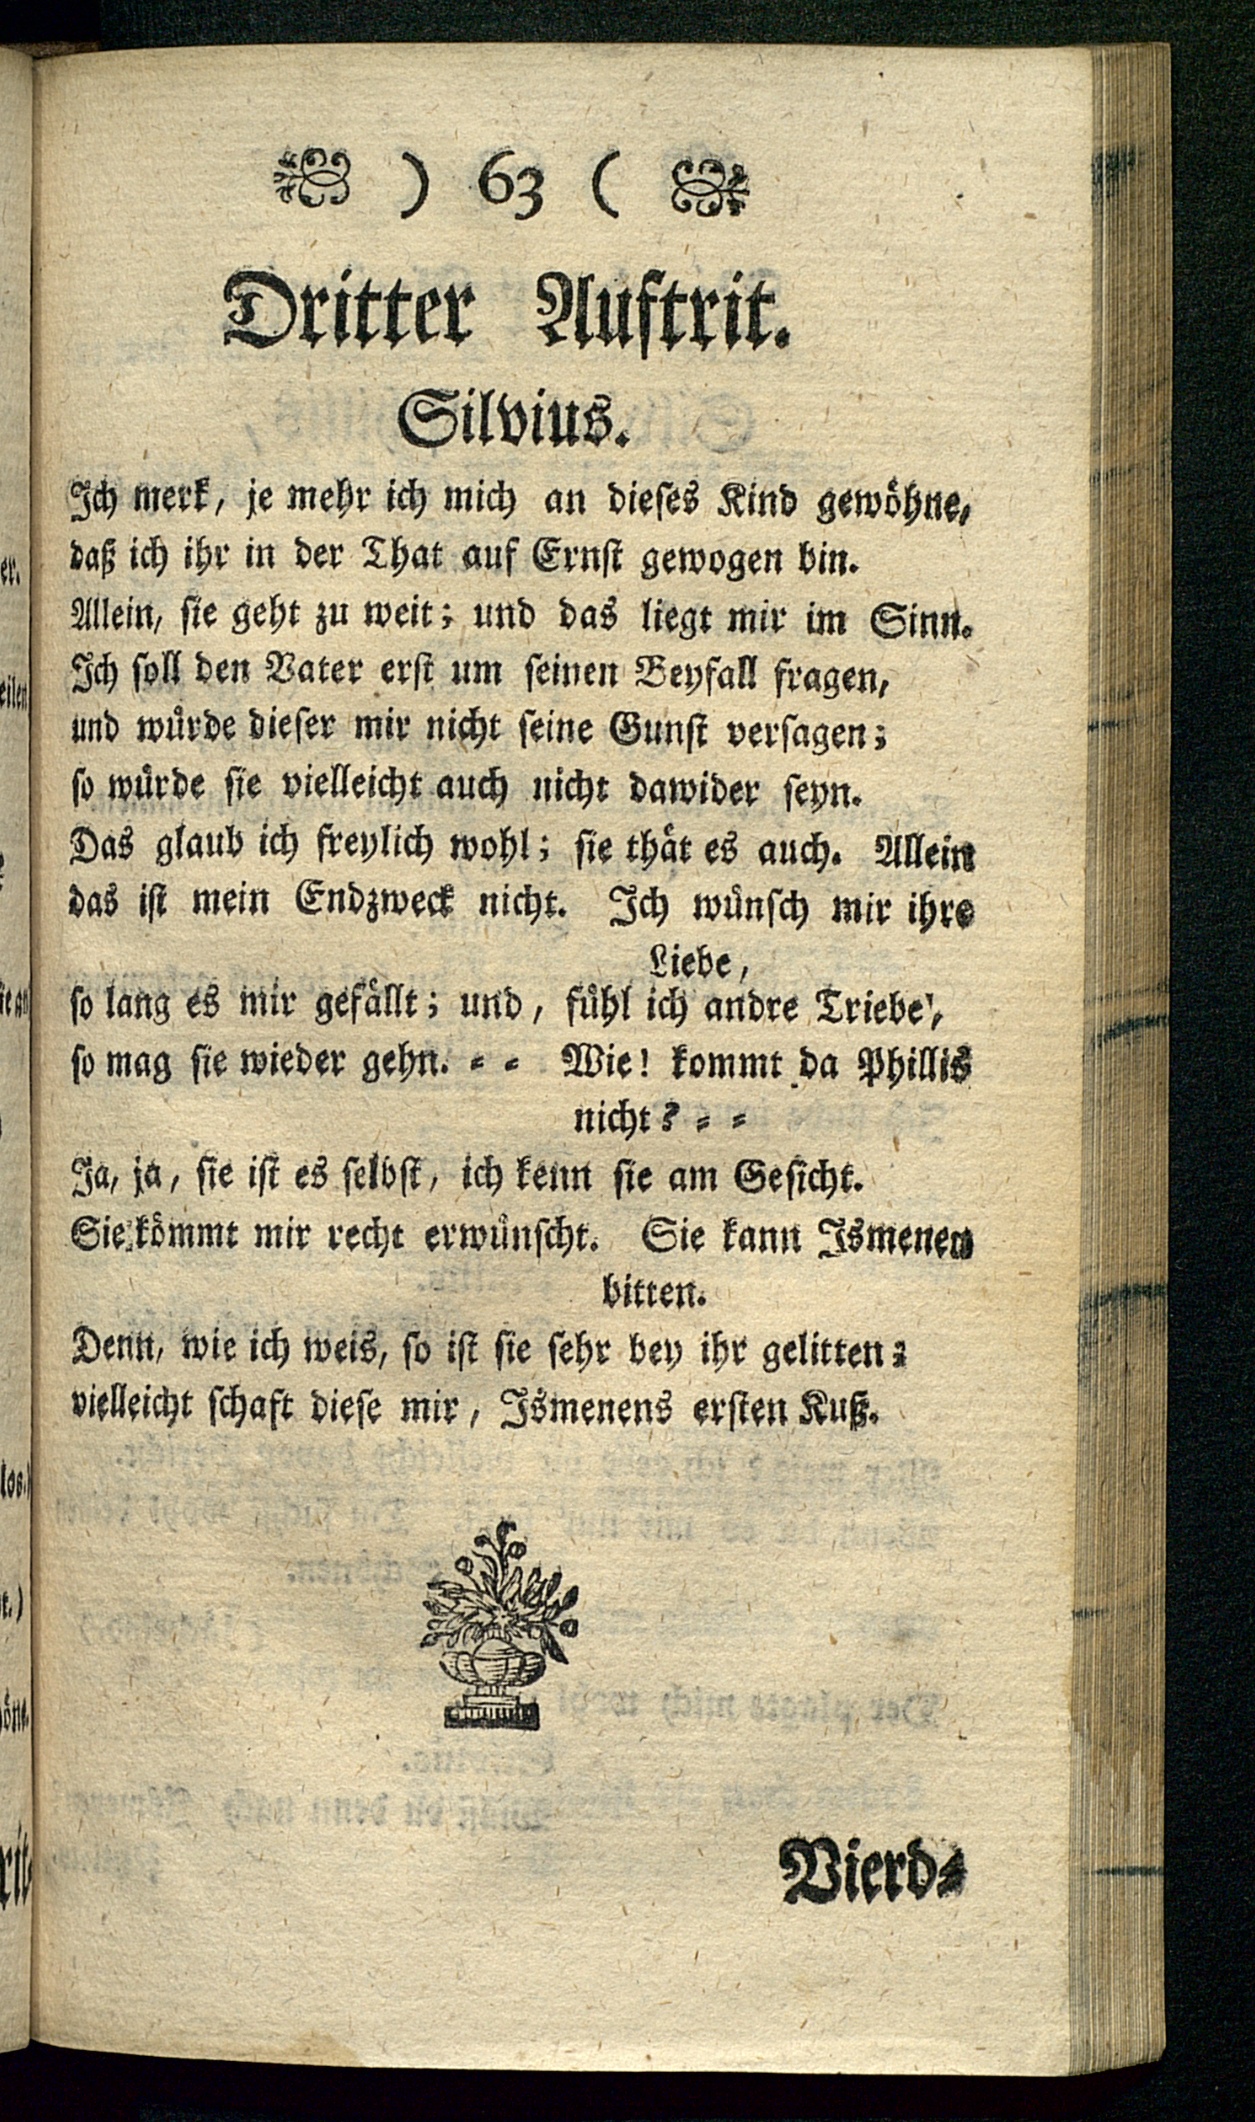 ) 63 (
Dritter Auftrit.
Silvius.
Ich merk, je mehr ich mich an dieses Kind gewöhne,
daß ich ihr in der That auf Ernst gewogen bin.
Allein, sie geht zu weit; und das liegt mir im Sinn.
Ich soll den Vater erst um seinen Beyfall fragen,
und würde dieser mir nicht seine Gunst versagen;
so würde sie vielleicht auch nicht dawider seyn.
Das glaub ich freylich wohl; sie thät es auch. Allein
das ist mein Endzweck nicht. Ich wünsch mir ihre
Liebe,
so lang es mir gefällt; und, fühl ich andre Triebe,
so mag sie wieder gehn. = = Wie! kommt da Phillis
nicht? = =
Ja, ja, sie ist es selbst, ich kenn sie am Gesicht.
Sie kömmt mir recht erwünscht. Sie kann Ismenen
bitten.
Denn, wie ich weis, so ist sie sehr bey ihr gelitten;
vielleicht schaft diese mir, Ismenens ersten Kuß.
Vierd=